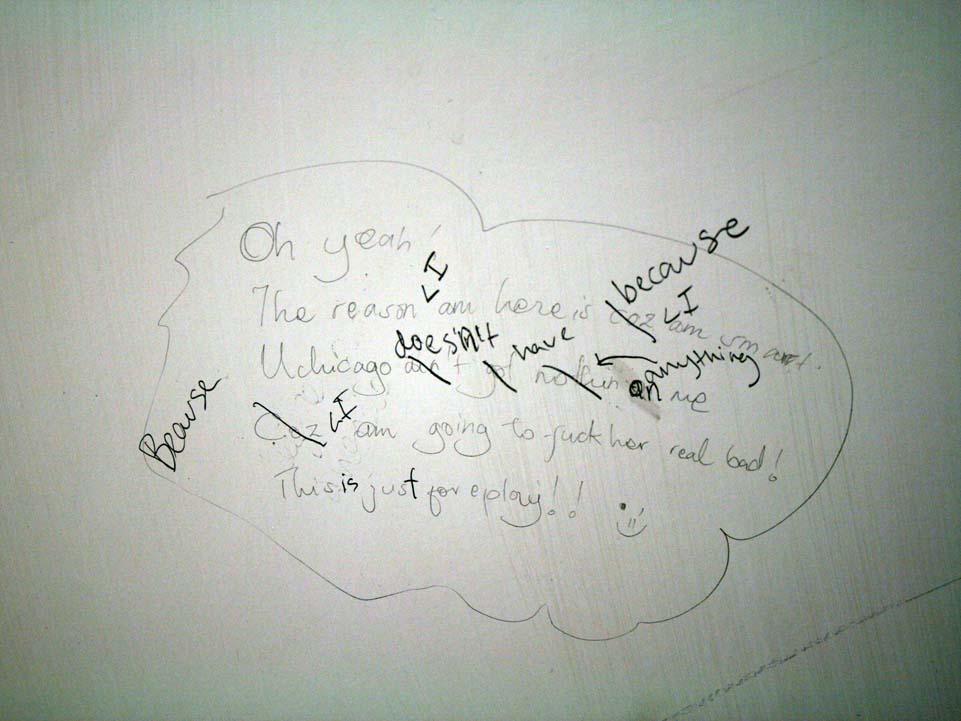 Oh yeah!
I because
The reason am here is Coz am smart.
I
doesn't have anything
Uchicago ain't got nothin on me
Beause I
Coz am going to fuck her real bad!
This is just foreplay!!